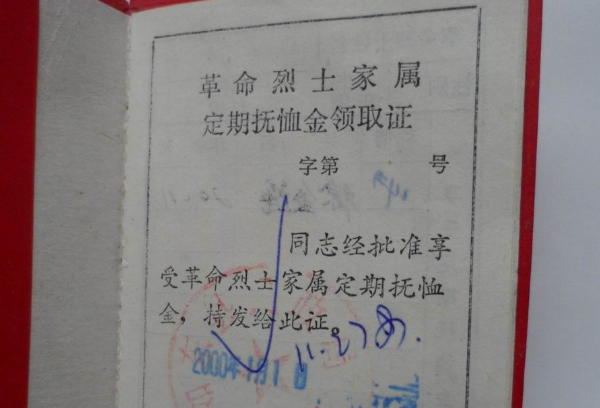 革命烈士家属
定期抚恤金领取证
字第 号
同志经批准享
受革命烈士家属定期抚恤
金，持发给此证。
2000年1月1日